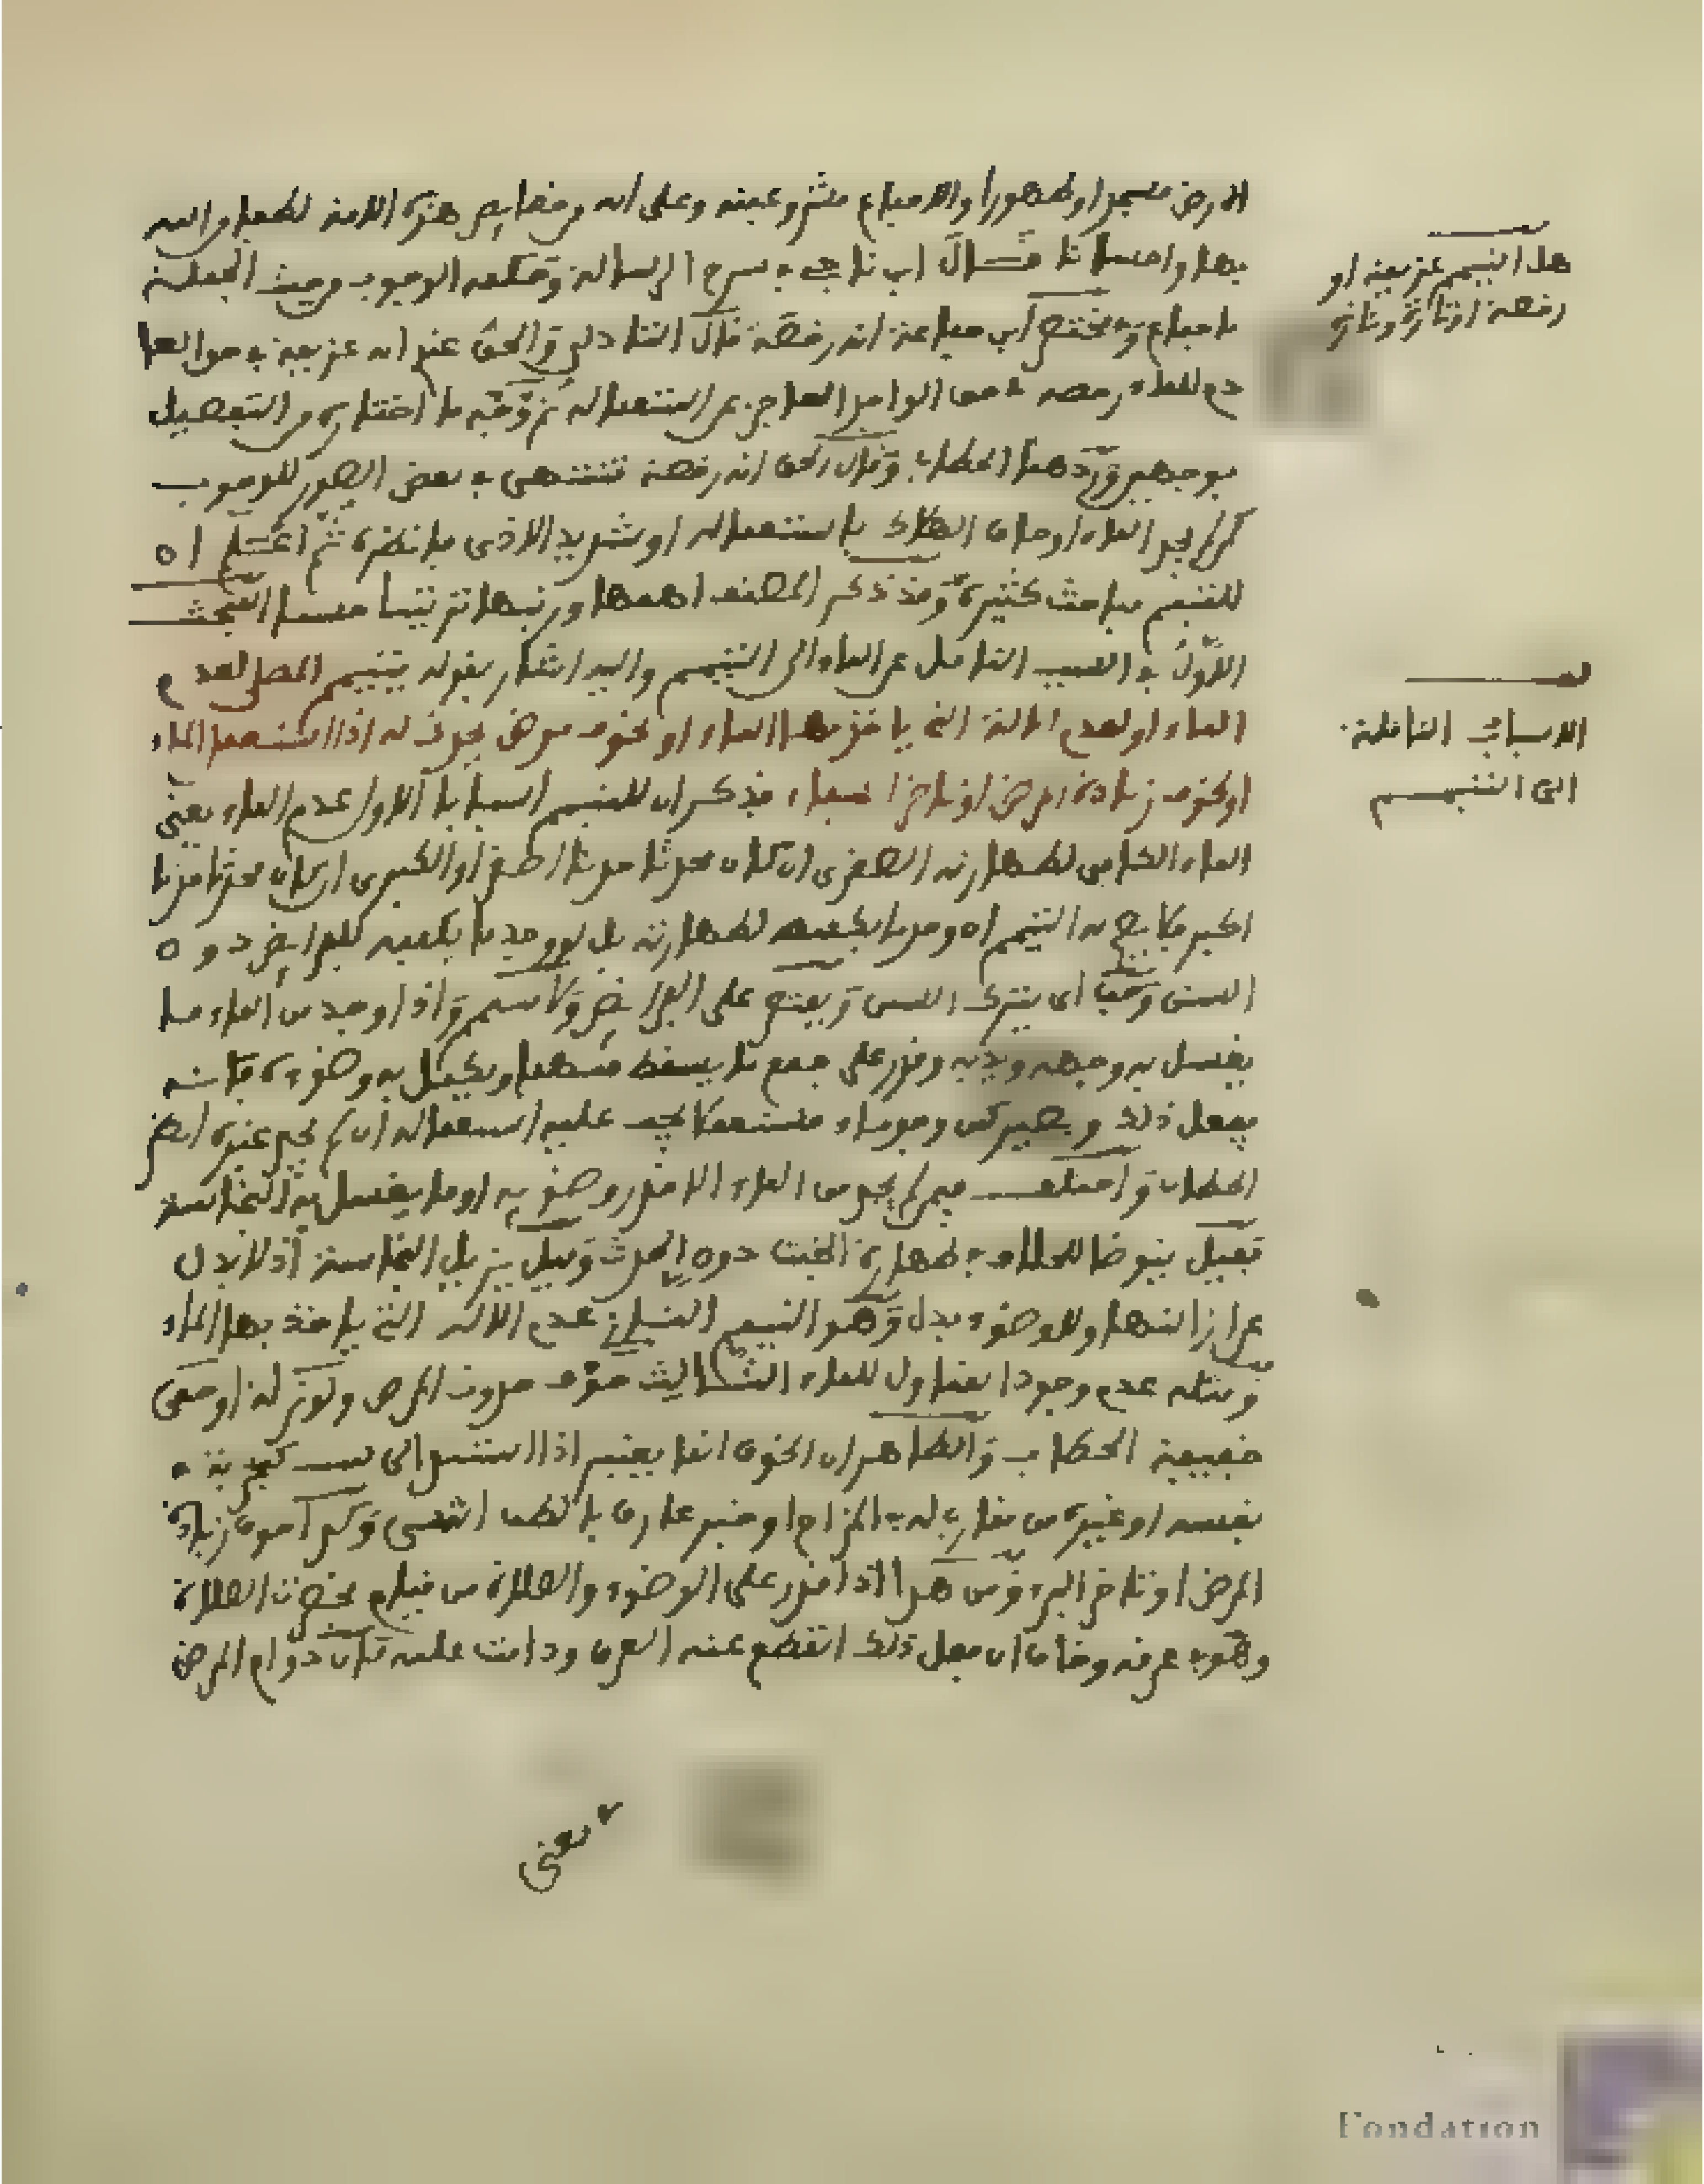 الارض مسجدا وطهورا والاجماع مشروعيته وعلى انه من خصايص هذه الامة لطفا من الله
بها واحسانا قال ابن ناجي في شرح الرسالة وحكمه الوجوب من حيث الجملة
باجماع وفي مختصر ابن جماعة انه رخصة قال التادلي والحق عندي انه عزيمة في حق العا
دم للماء رخصة في حق الواجد العاجز عن استعماله ثم وجه ما اختاره من التفصيل
بوجهين ورده الحطاب وقال الحق انه رخصة تنتهي في بعض الصور للوجوب
كمن لم يجد الماء او خاف الهلاك باستعماله او شديد الاذى فانظره ثم اعلم ان
للتيمم مباحث كثيرة وقد ذكر المصنف اهمها ورتبها ترتيبا حسنا البحث
الاول في السبب الناقل عن الماء الى التيمم واليه اشار بقوله يتيمم المصلي لعدم
الماء او لعدم الالة التي ياخذ بها الماء او لخوف مرض يحدث له اذا استعمل الماء
او لخوف زيادة المرض او تاخر الشفاء فذكر ان للتيمم اسبابا الاول عدم الماء يعني
الماء الكافي لطهارته الصغرى ان كان محدثا حدثا اصغر او الكبرى ان كان محدثا حدثا
اكبر فلا يصح له التيمم ان وجد ما يكفيه لطهارته بل لو وجد ما يكفيه للفرايض دون
السنن وجب ان يترك السنن ويقتصر على الفرايض ولا يتيمم واذا وجد من الماء ما
يغسل به وجهه ويديه وقدر على جمع ما يسقط منهما ويكمل به وضوءه فانه
يفعل ذلك ويصير كمن وجد ماء مستعملا يجب عليه استعماله ان لم يجد غيره انظر
الحطاب واختلف فيمن لم يجد من الماء الا قدر وضوئه او ما يغسل به النجاسة
فقيل يتوضا للخلاف في طهارة الخبث دون الحدث وقيل يزيل النجاسة اذ لا بدل
عن ازالتها وللوضوء بدل وهو التيمم الثاني عدم الالة التي ياخذ بها الماء
ومثله عدم وجود مناول للماء الثالث خوف حدوث المرض ولو نزلة او حمى
خفيفة الحطاب والظاهر ان الخوف انما يعتبر اذا استند الى سبب كتجربة
بنفسه او غيره ممن يقاربه في المزاج او خبر عارف بالطب انتهى وكذا خوف زيادة
المرض او تاخر البرء ومن هذا اذا قدر على الوضوء والصلاة من قيام فحضرت الصلاة
وهو في عرقه وخاف ان فعل ذلك انقطع عنه العرق ودامت علته قال دوام المرض
يعني
هل التيمم عزيمة او
رخصة او تارة وتارة
الاسباب الناقلة
الى التيمم
Fondation